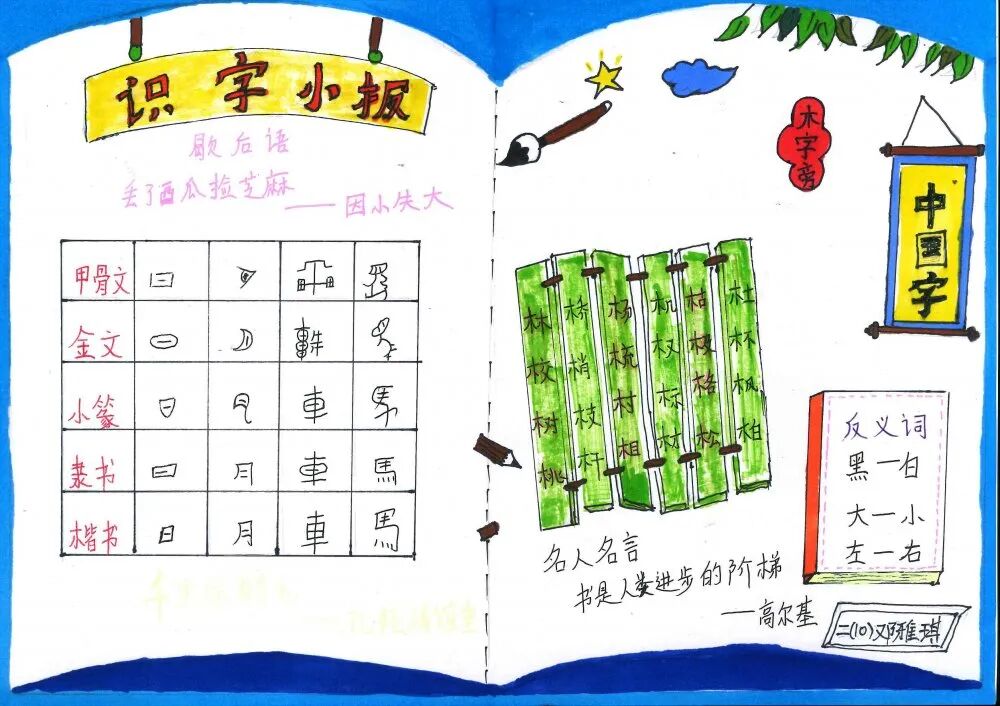 识字小报
歇后语
丢了西瓜捡芝麻
——因小失大
甲骨文
金文
小篆 車 馬
隶书 日 月 車 馬
楷书 日 月 車 馬
木字旁
中国字
林 桥 杨 杭 桔 杜
校 梢 梳 权 极 杯
树 枝 村 标 格 枫
桃 杆 相 材 松 柏
反义词
黑—白
大—小
左—右
名人名言
书是人类进步的阶梯
——高尔基
二(10)邓雅琪